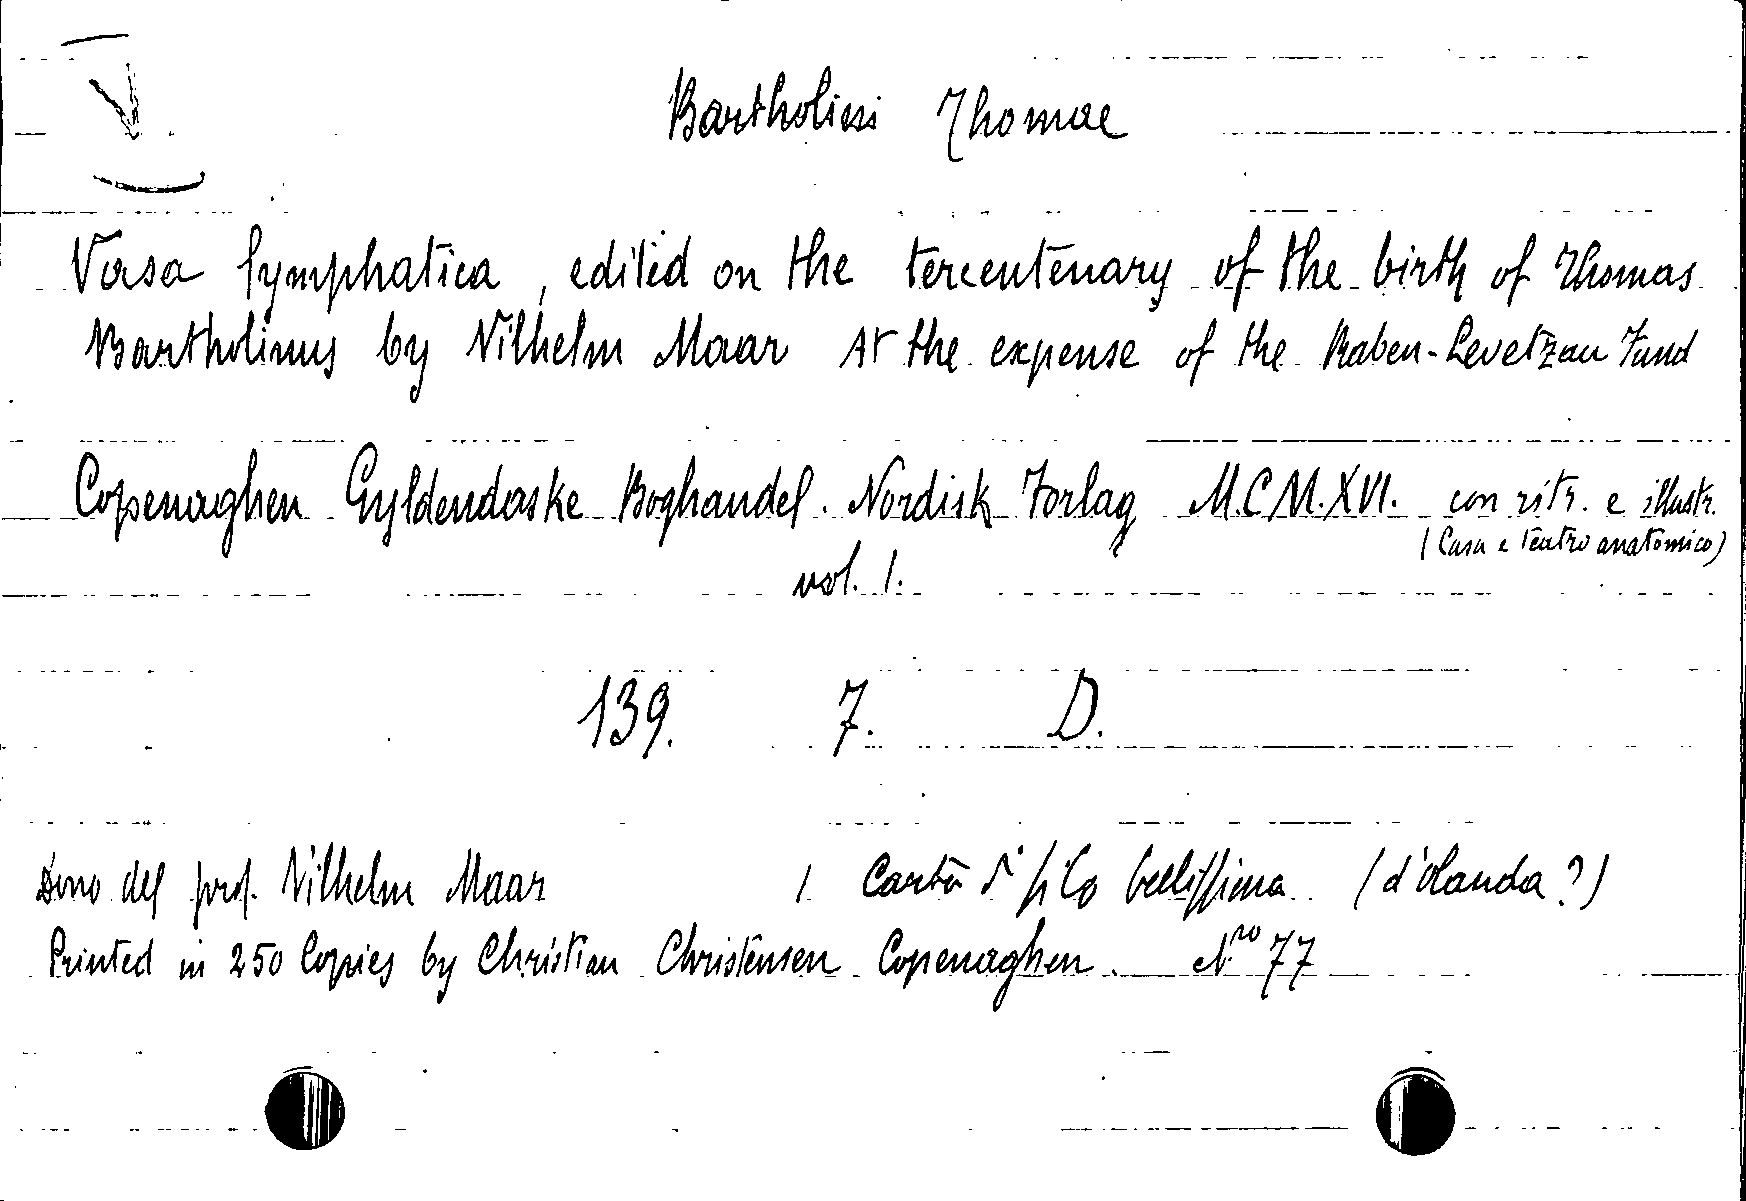 V
Bartholini Thomae
Vasa lymphatica, edited on the tercentenary of the birth of Thomas
Bartholinus by Vilhelm Maar At the expense of the Raben-Levetzau Fund
Copenaghen Gyldendaske Boghandel. Nordisk Forlag M.C.M.XVI. con ritr. e illustr.
(Casa e teatro anatomico)
vol. 1.
139. 7. D.
Dono del prof. Vilhelm Maar / Carta di filo bellissima (d'olanda?)
Printed in 250 Copies by Christian Christensen Copenaghen. N.ro 77